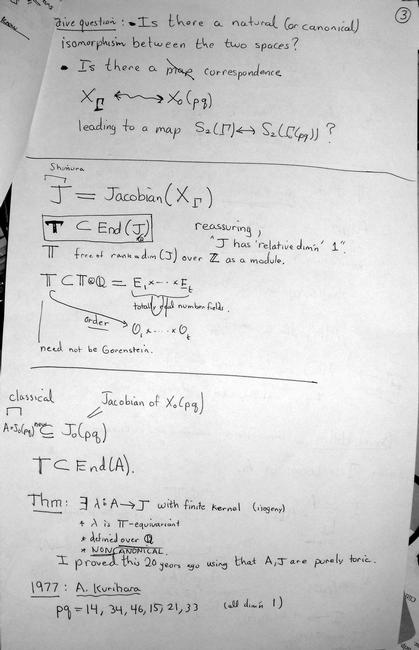 ③
Naive question: • Is there a natural (or canonical)
isomorphism between the two spaces?
• Is there a map correspondence
X_Γ ↔ X₀(pq)
leading to a map S₂(Γ) ↔ S₂(Γ₀(pq)) ?
Shimura
J = Jacobian (X_Γ)
𝕋 ⊂ End(J)
reassuring,
"J has 'relative dim'n' 1".
𝕋 free of rank = dim(J) over ℤ as a module.
𝕋 ⊂ 𝕋⊗ℚ = E₁ × ··· × E_t
totally real number fields.
order
O₁ × ··· × O_t
need not be Gorenstein.
classical
Jacobian of X₀(pq)
A = J₀(pq)^new ⊆ J₀(pq)
𝕋 ⊂ End(A).
Thm: ∃ λ: A → J with finite kernel (isogeny)
+ λ is 𝕋-equivariant
* defined over ℚ
* NONCANONICAL.
I proved this 20 years ago using that A, J are purely toric.
1977 : A. Kurihara
pq = 14, 34, 46, 15, 21, 33 (all dim'n 1)